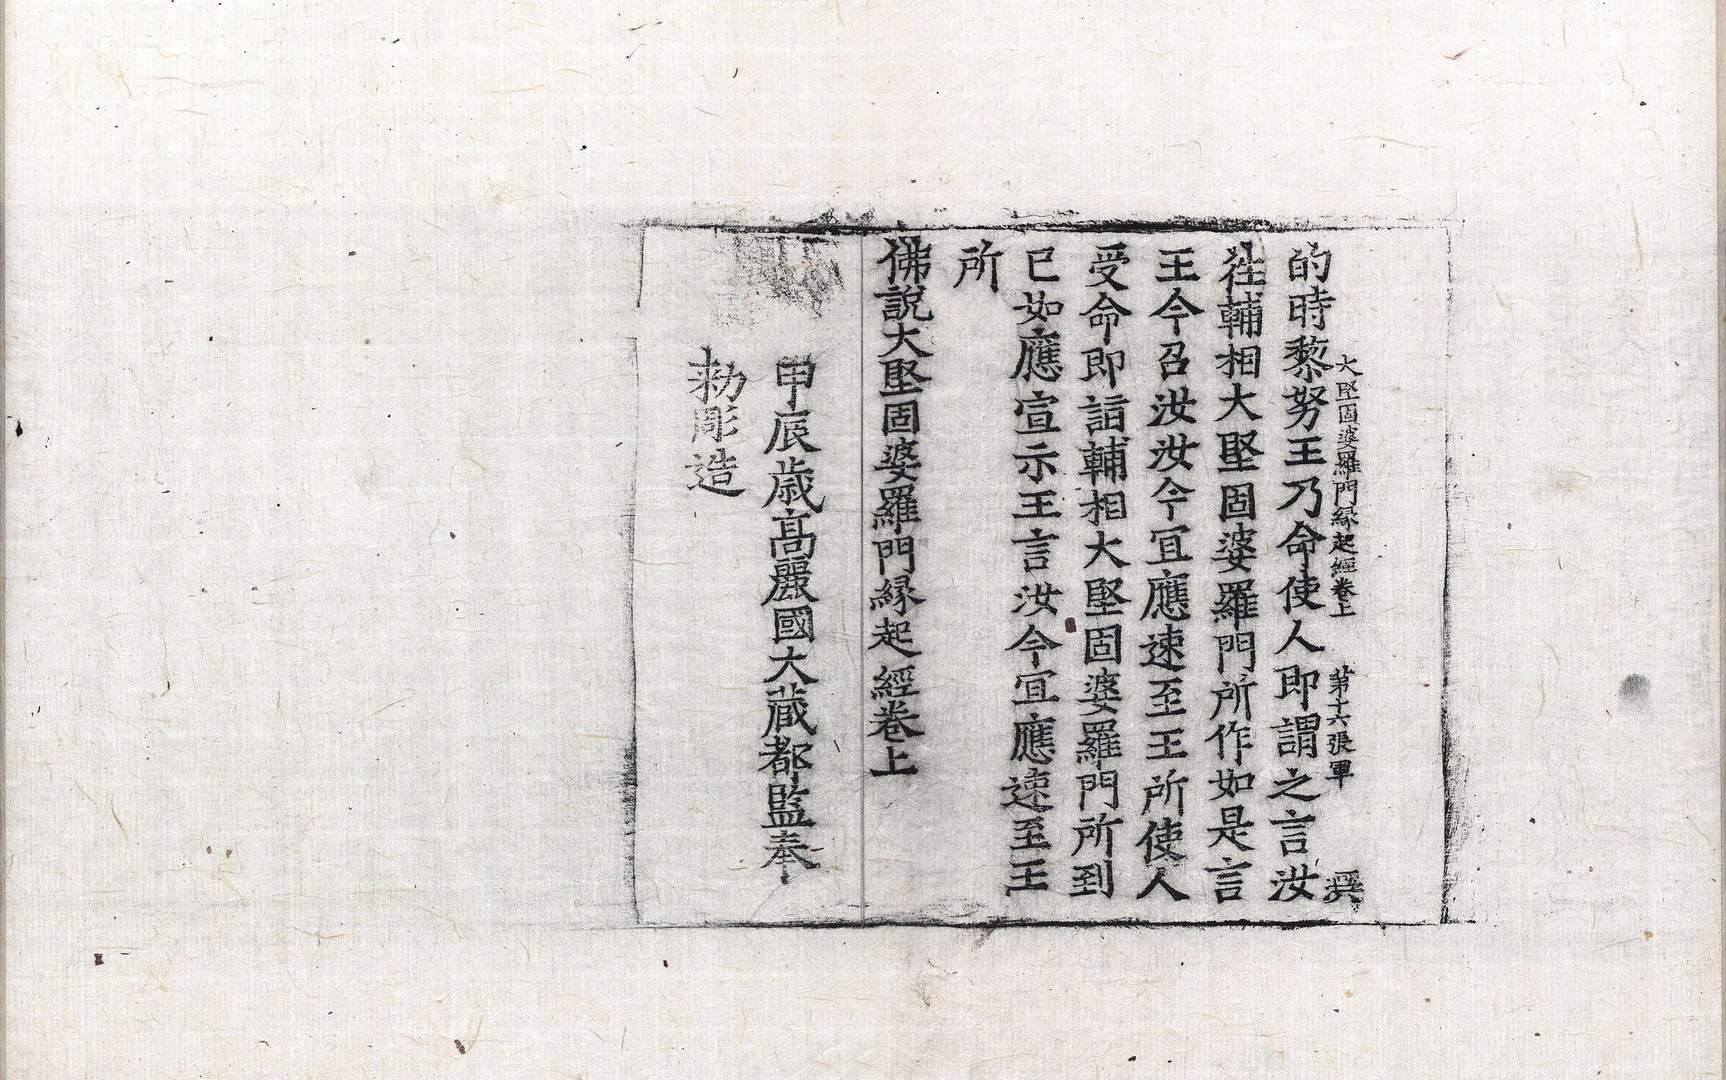 大堅固婆羅門縁起經卷上　第十六張軍
的時黎努王乃命使人即謂之言汝
往輔相大堅固婆羅門所作如是言
王今召汝汝今宜應速至王所使人
受命即詣輔相大堅固婆羅門所到
已如應宣示王言汝今宜應速至王
所
佛說大堅固婆羅門縁起經卷上
甲辰歳高麗國大藏都監奉
勑彫造